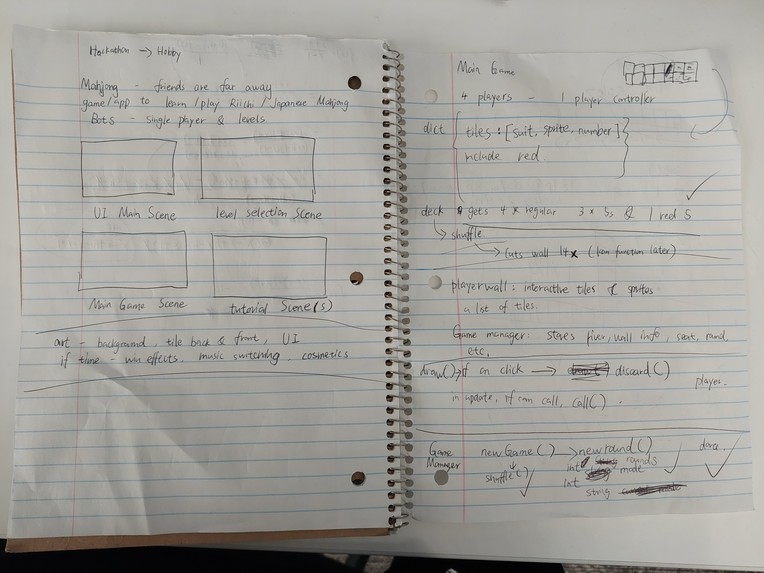 Hackathon → Hobby
Mahjong - friends are far away
game/app to learn/play Riichi/Japanese Mahjong
Bots - single player & levels.
UI Main Scene
level selection Scene
Main Game Scene
tutorial Scene(s)
art - background, tile back & front, UI
if time - win effects, music switching, cosmetics
Main Game
4 players - 1 player controller
dict { tiles : [suit, sprite, number] }
include red
deck gets 4 x regular 3 x 5s & 1 red 5
↳ shuffle
↳ cuts wall 14x (kan function later)
playerwall : interactive tiles & sprites
a list of tiles.
Game manager: stores wall info, seat, round,
etc,
draw() → if on click → discard()
player.
in update, if can call, call().
Game Manager
newGame() → newround()
shuffle()
int rounds
int mode
string